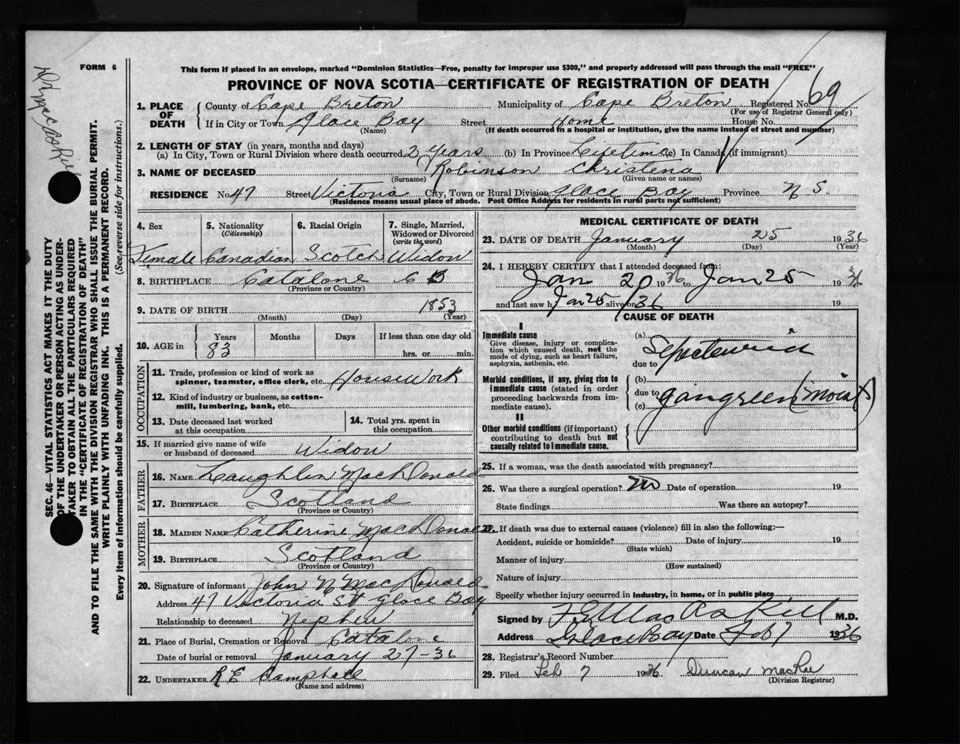 FORM 6
This form if placed in an envelope, marked "Dominion Statistics—Free, penalty for improper use $300," and properly addressed will pass through the mail "FREE"
PROVINCE OF NOVA SCOTIA—CERTIFICATE OF REGISTRATION OF DEATH
1. PLACE OF DEATH County of Cape Breton Municipality of Cape Breton Registered No. 69
(For use of Registrar General only)
If in City or Town Glace Bay Street Home House No.
(Name) (If death occurred in a hospital or institution, give the name instead of street and number)
2. LENGTH OF STAY (in years, months and days)
(a) In City, Town or Rural Division where death occurred 2 years (b) In Province Lifetime (c) In Canada (if immigrant)
3. NAME OF DECEASED Robinson Christena
(Surname) (Given name or names)
RESIDENCE No 47 Street Victoria City, Town or Rural Division Glace Bay Province N S
(Residence means usual place of abode. Post Office Address for residents in rural parts not sufficient)
4. Sex 5. Nationality (Citizenship) 6. Racial Origin 7. Single, Married, Widowed or Divorced (write the word)
Female Canadian Scotch Widow
8. BIRTHPLACE Catalone C B
(Province or Country)
9. DATE OF BIRTH 1853
(Month) (Day) (Year)
10. AGE in Years Months Days If less than one day old
83 hrs. or min.
OCCUPATION
11. Trade, profession or kind of work as spinner, teamster, office clerk, etc. Housework
12. Kind of industry or business, as cotton-mill, lumbering, bank, etc.
13. Date deceased last worked at this occupation 14. Total yrs. spent in this occupation
15. If married give name of wife or husband of deceased Widow
FATHER
16. NAME Laughlin MacDonald
17. BIRTHPLACE Scotland
(Province or Country)
MOTHER
18. MAIDEN NAME Catherine MacDonald
19. BIRTHPLACE Scotland
(Province or Country)
20. Signature of informant John N MacDonald
Address 47 Victoria St Glace Bay
Relationship to deceased Nephew
21. Place of Burial, Cremation or Removal Catalone
Date of burial or removal January 27-36
22. UNDERTAKER R E Campbell
(Name and address)
MEDICAL CERTIFICATE OF DEATH
23. DATE OF DEATH January 25 1936
(Month) (Day) (Year)
24. I HEREBY CERTIFY that I attended deceased from:
Jan 20 1936 to Jan 25 19 36
and last saw h alive on Jan 25 36
CAUSE OF DEATH
I
Immediate cause
Give disease, injury or complication which caused death, not the mode of dying, such as heart failure, asphyxia, asthenia, etc.
(a)
due to
Morbid conditions, if any, giving rise to immediate cause (stated in order proceeding backwards from immediate cause).
(b)
due to gangreen (moist)
(c)
II
Other morbid conditions (if important) contributing to death but not causally related to immediate cause.
25. If a woman, was the death associated with pregnancy?
26. Was there a surgical operation? No Date of operation 19
State findings Was there an autopsy?
27. If death was due to external causes (violence) fill in also the following:—
Accident, suicide or homicide? Date of injury 19
(State which)
Manner of injury
(How sustained)
Nature of injury
Specify whether injury occurred in industry, in home, or in public place
Signed by MacAskill M.D.
Address Glace Bay Date Feb 7 1936
28. Registrar's Record Number
29. Filed Feb 7 1936 Duncan MacRae
(Division Registrar)
SEC. 46—VITAL STATISTICS ACT MAKES IT THE DUTY
OF THE UNDERTAKER OR PERSON ACTING AS UNDER-
TAKER TO OBTAIN ALL THE PARTICULARS REQUIRED
IN THE "CERTIFICATE OF REGISTRATION OF DEATH"
AND TO FILE THE SAME WITH THE DIVISION REGISTRAR WHO SHALL ISSUE THE BURIAL PERMIT.
WRITE PLAINLY WITH UNFADING INK. THIS IS A PERMANENT RECORD.
Every item of information should be carefully supplied. (See reverse side for instructions.)